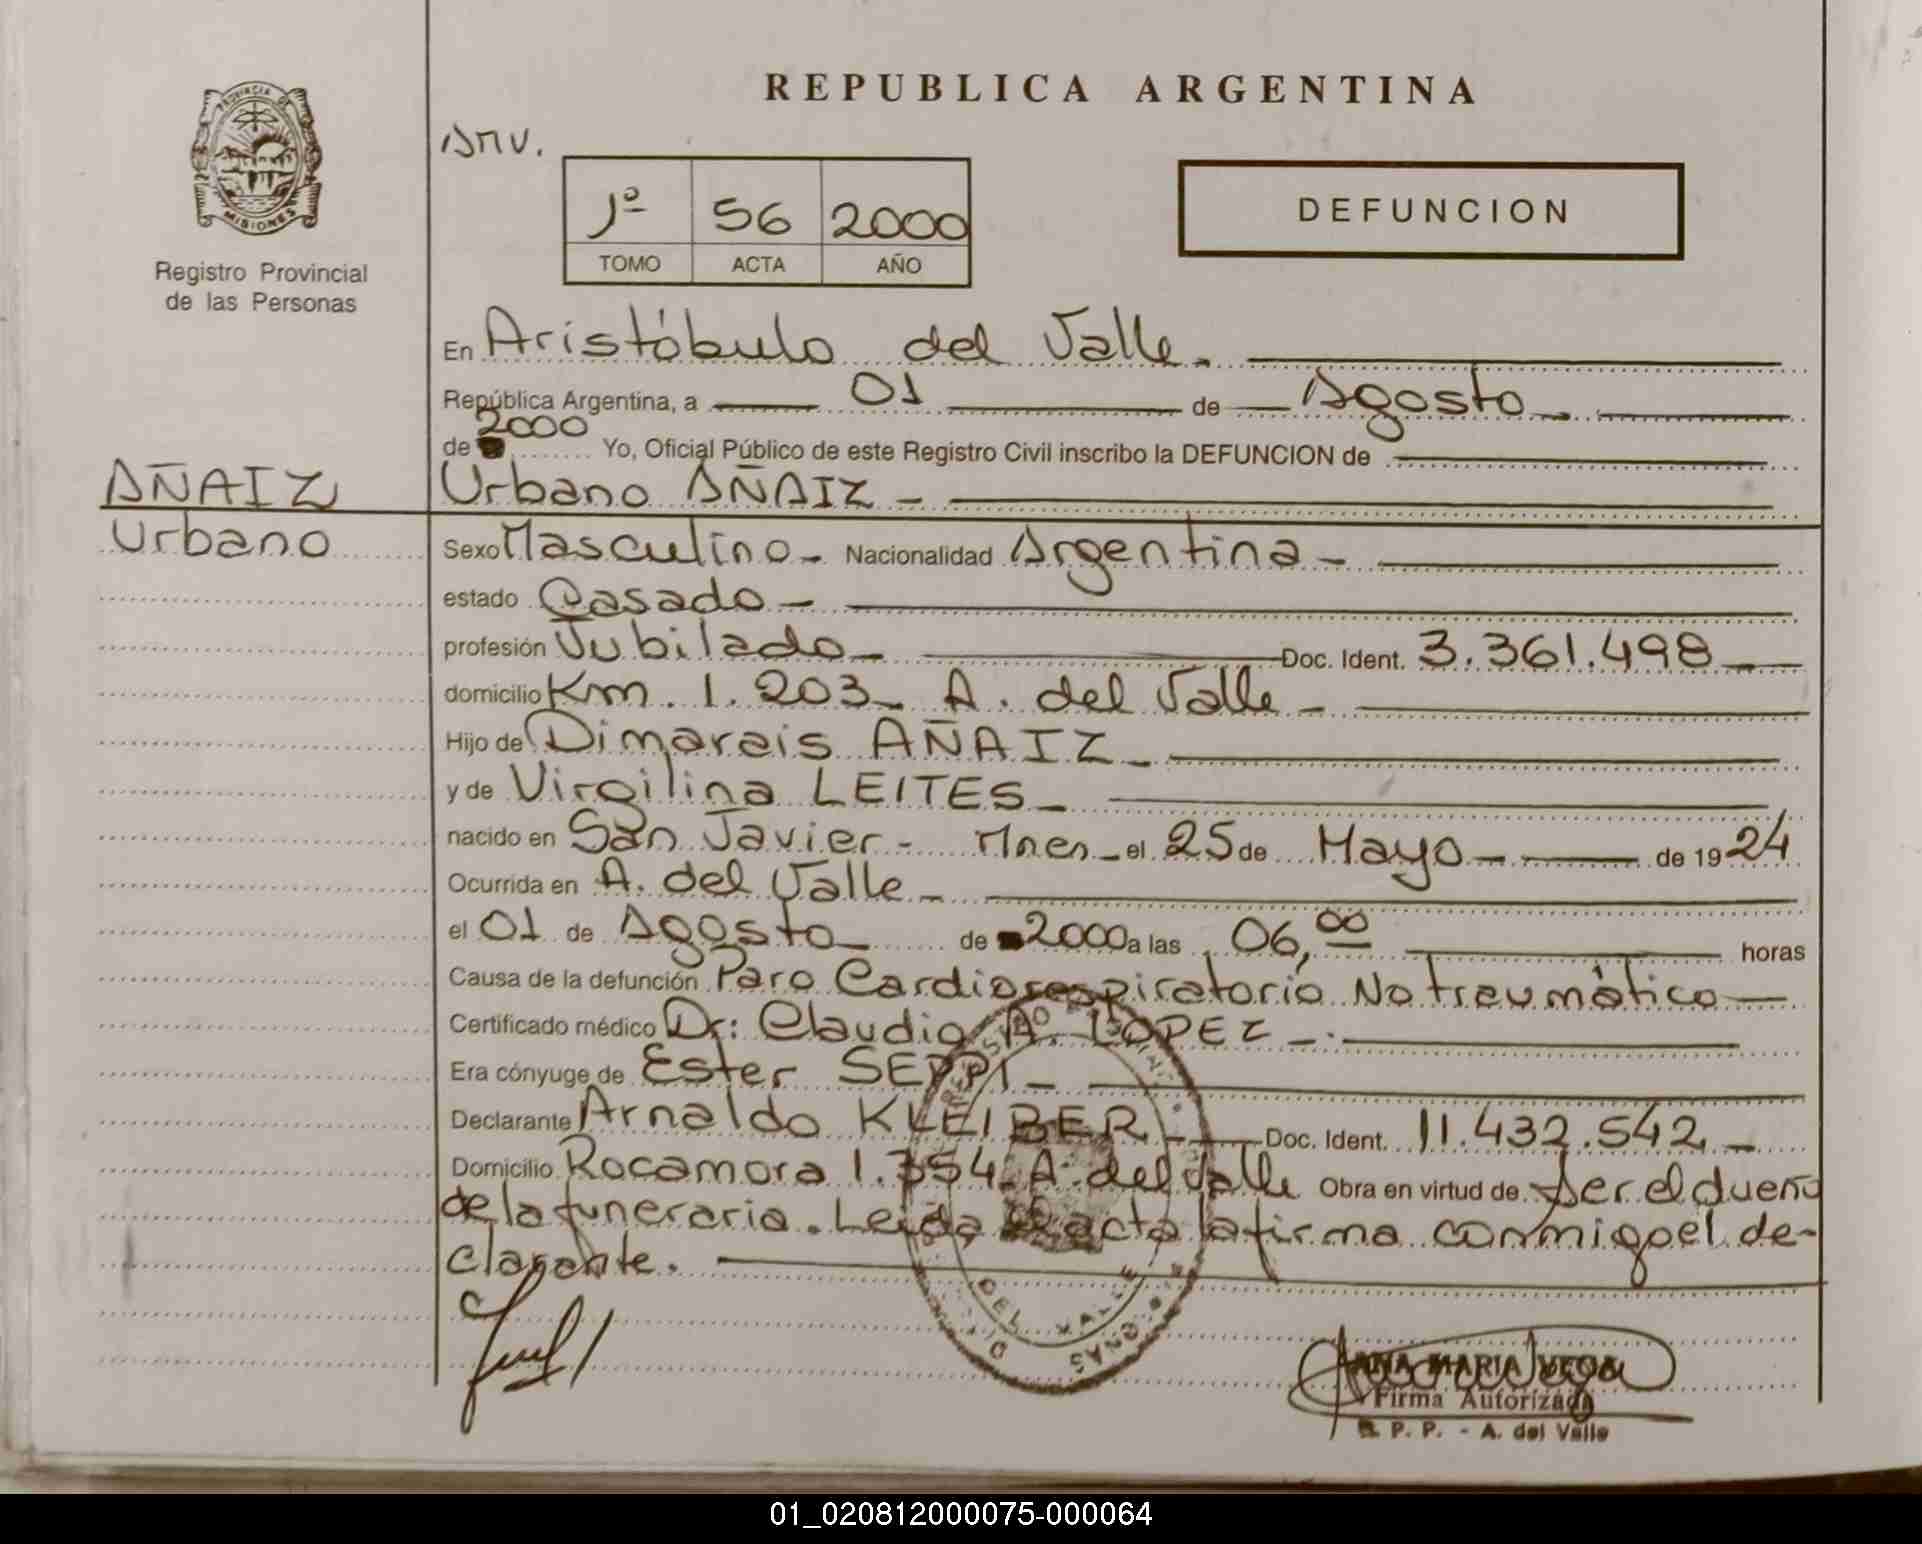 REPUBLICA ARGENTINA
PROVINCIA DE
MISIONES
Registro Provincial
de las Personas
AMV.
1º 56 2000
TOMO ACTA AÑO
DEFUNCION
En Aristóbulo del Valle.
República Argentina, a 01 de Agosto
de 2000 Yo, Oficial Público de este Registro Civil inscribo la DEFUNCION de
AÑAIZ
Urbano
Urbano AÑAIZ
Sexo Masculino Nacionalidad Argentina
estado Casado
profesión Jubilado Doc. Ident. 3.361.498
domicilio Km. 1.203 A. del Valle
Hijo de Dimarais AÑAIZ
y de Virgilina LEITES
nacido en San Javier - Mnes el 25 de Mayo de 1924
Ocurrida en A. del Valle
el 01 de Agosto de 2000 a las 06,00 horas
Causa de la defunción Paro Cardiorespiratorio No traumático
Certificado médico Dr: Claudio A. LOPEZ
Era cónyuge de Ester SEPPI
Declarante Arnaldo KLEIBER Doc. Ident. 11.432.542
Domicilio Rocamora 1.354 A. del Valle Obra en virtud de Ser el dueño
de la funeraria. Leida el acta la firma conmigo el de-
clarante.
DEL VALLE
ANA MARIA VEGA
Firma Autorizada
R. P. P. - A. del Valle
01_020812000075-000064